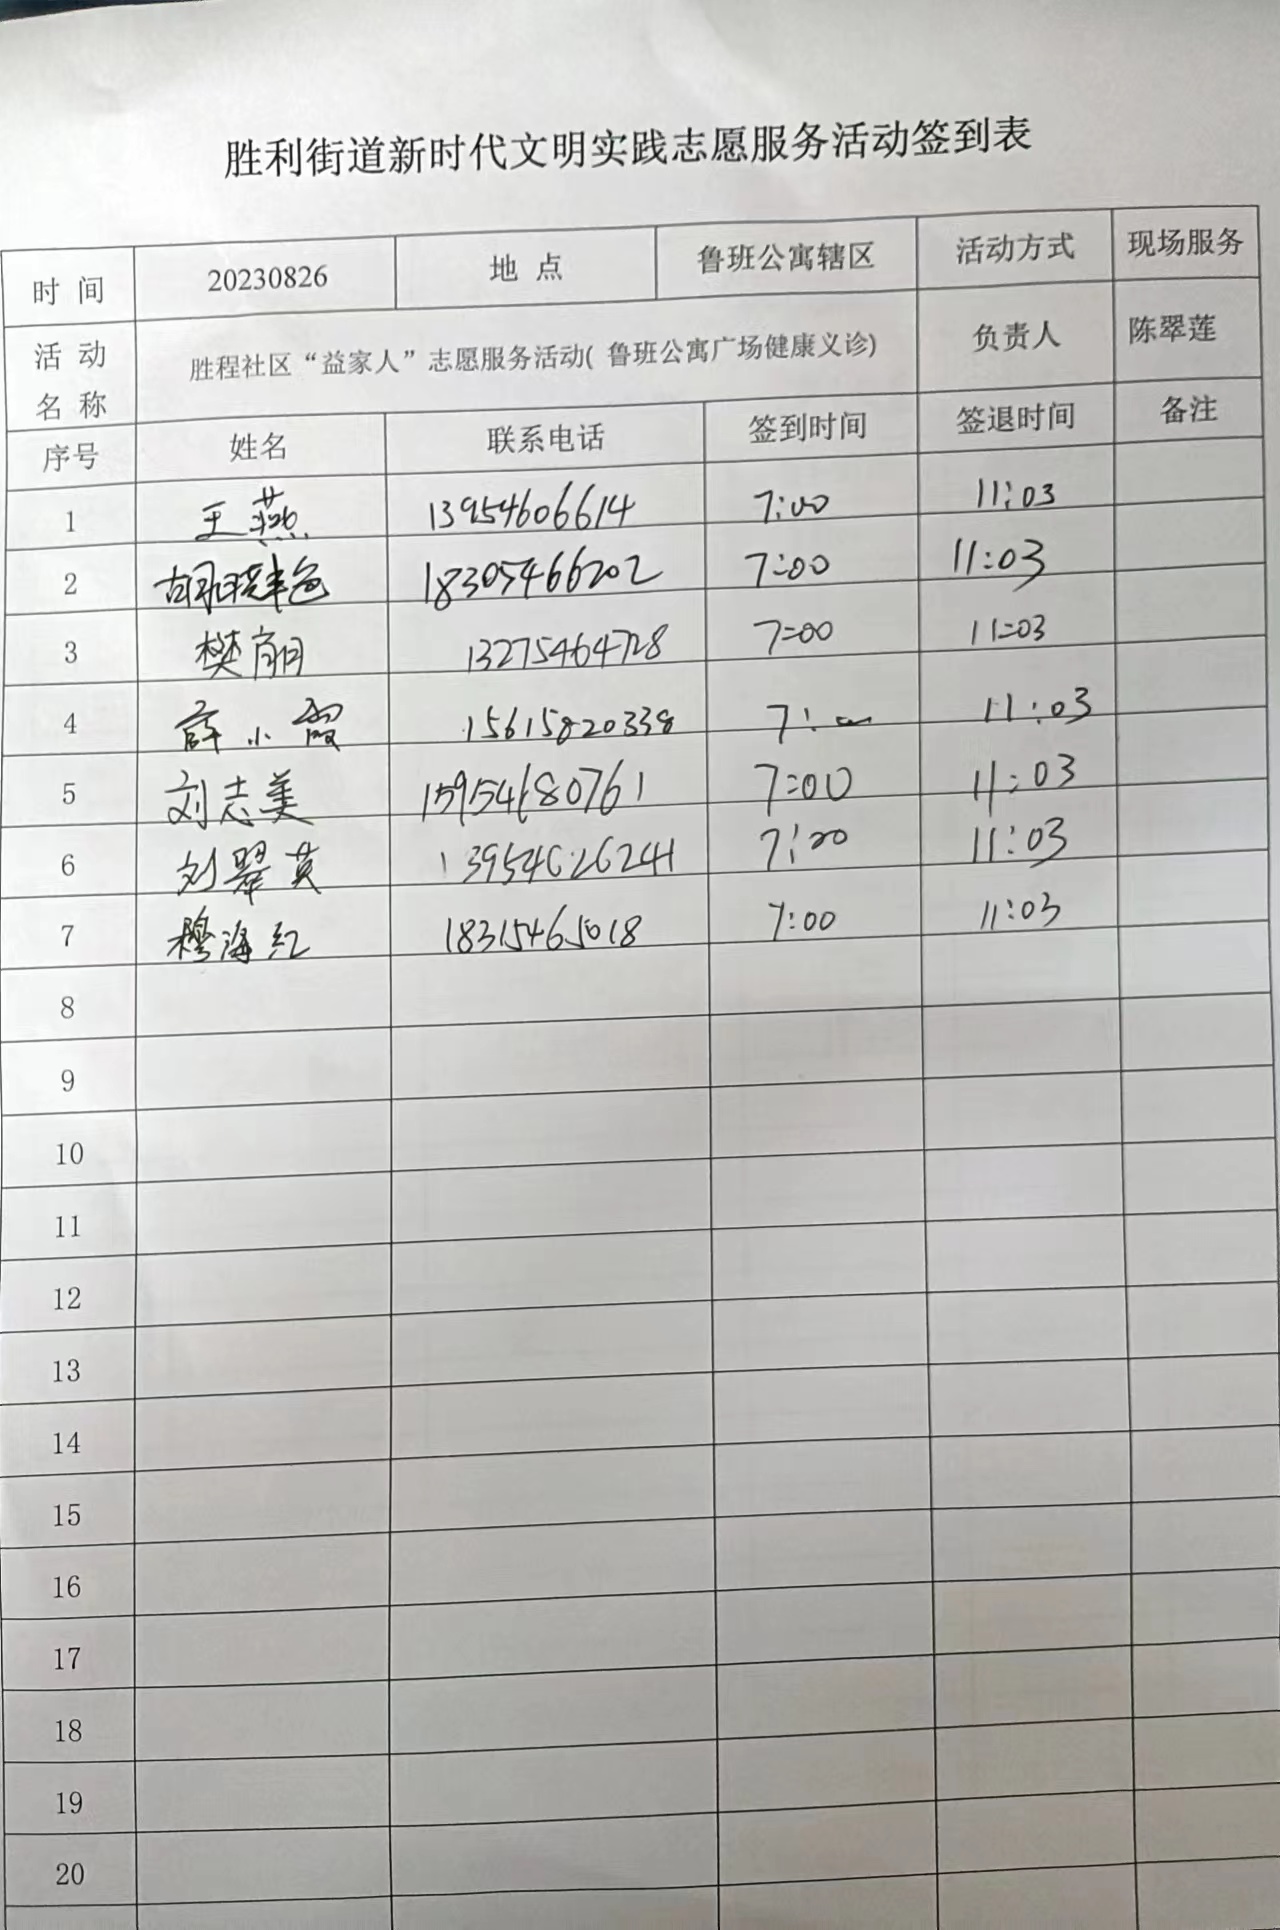 胜利街道新时代文明实践志愿服务活动签到表
时 间 20230826 地 点 鲁班公寓辖区 活动方式 现场服务
活 动 名 称 胜程社区“益家人”志愿服务活动( 鲁班公寓广场健康义诊) 负责人 陈翠莲
序号 姓名 联系电话 签到时间 签退时间 备注
1 王燕 13954606614 7:00 11:03
2 胡晓艳 18305466202 7:00 11:03
3 樊丽 13275464728 7:00 11:03
4 薛小霞 15615820338 7: 11:03
5 刘志美 15954680761 7:00 11:03
6 刘翠英 13954626241 7:00 11:03
7 穆海红 18315465018 7:00 11:03
8
9
10
11
12
13
14
15
16
17
18
19
20